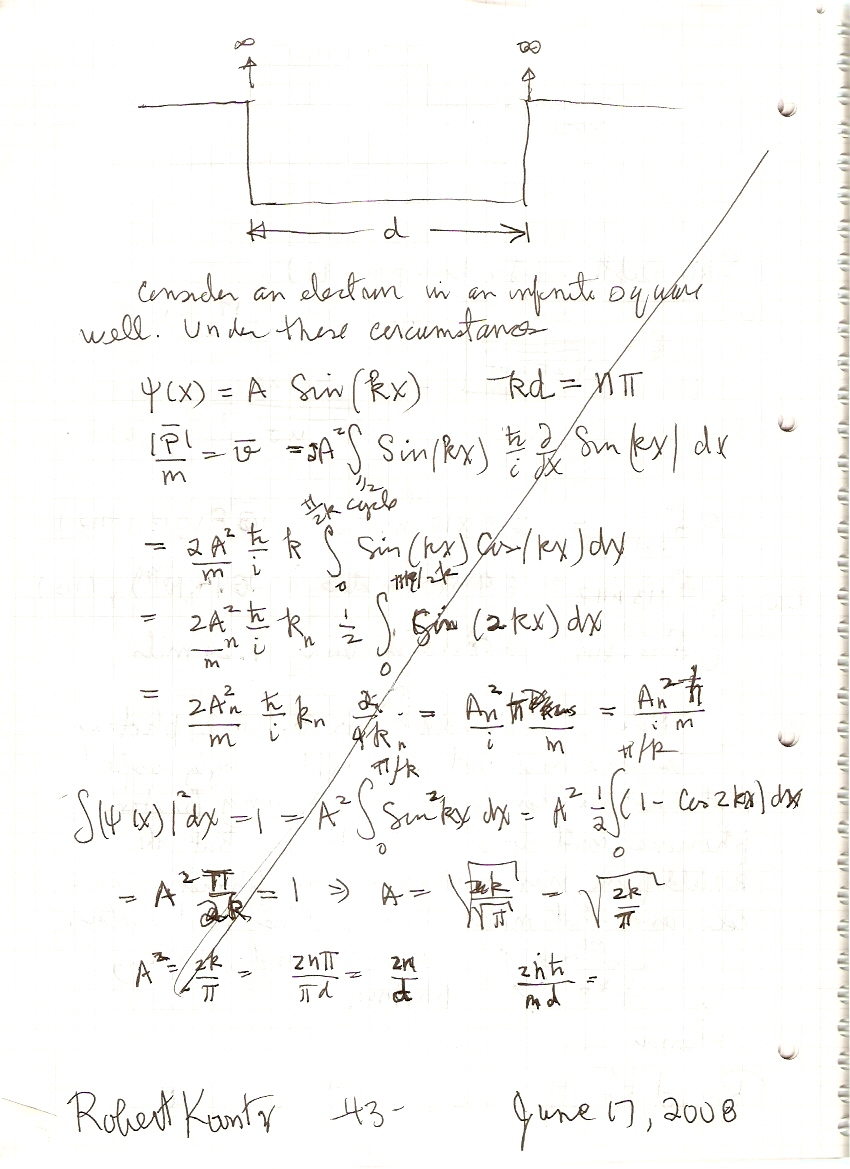 ∞ ∞
d
Consider an electron in an infinite square
well. Under these circumstances
ψ(x) = A Sin(kx) kd = nπ
|P̄|/m = v̄ = A² ∫_{1/2 cycle} Sin(kx) ħ/i ∂/∂x Sin(kx) dx
= 2A²/m ħ/i k ∫₀^{π/2k} Sin(kx) Cos(kx) dx
= 2Aₙ²/m ħ/i kₙ 1/2 ∫₀^{π/2k} Sin(2kx) dx
= 2Aₙ²/m ħ/i kₙ 2/4kₙ = Aₙ²/i ħ/m = Aₙ²ħ/im
∫|ψ(x)|²dx = 1 = A² ∫₀^{π/k} Sin²kx dx = A² 1/2 ∫₀^{π/k} (1 - Cos2kx) dx
= A² π/2k = 1 ⇒ A = √(2k)/√π = √(2k/π)
A² = 2k/π = 2nπ/πd = 2n/d 2nħ/md =
Robert Kantr 43- June 17, 2008